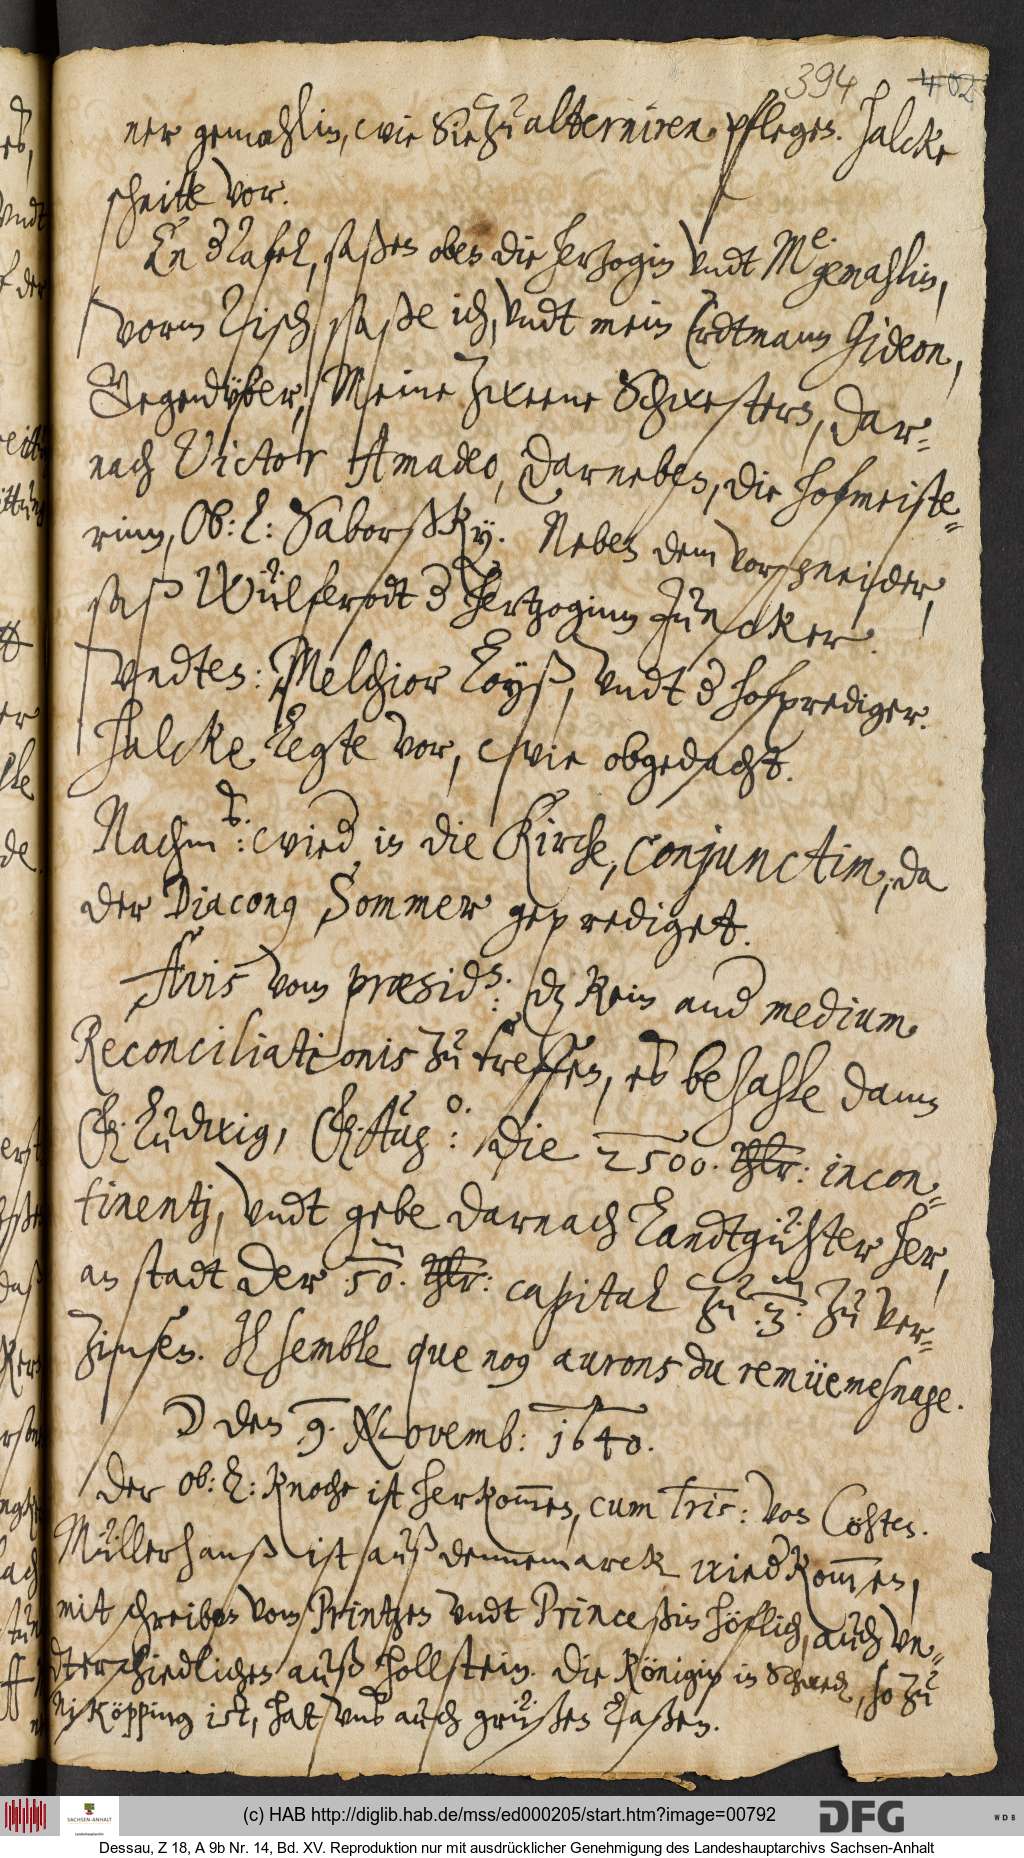 394 402
ner gemahlin, wie Sie zu alterniren pflegen. Halcke
schnitte vor.
An der Tafel, saßen oben die Hertzogin vndt Me: gemahlin,
vorm Tisch saße ich, vndt mein Erdtmann Gideon,
Gegenüber, Meine zweene Schwestern, dar-
nach Victor Amadeo, darneben, die hofmeiste-
rinn, Ob: L: Saborßky. Neben dem vorschneider,
saß Wülferodt der Hertzoginn Juncker.
vndten: Melchior Loyß, vndt der hofprediger.
Halcke legte vor, wie obgedacht.
Nachm: wieder in die Kirche, conjunctim, da
der Diaconus Sommer geprediget.
Avis vom præsid: daß kein ander medium
Reconciliationis zu treffen, es bezahle dann
F. Ludwig, F. Augo: die 2500 Thlr: incon-
tinentj, vndt gebe darnach Landtgühter her,
an stadt der 50 m Thlr: capital zu 3 m zu ver-
Zinsen. Il semble que nous aurons du remüemesnage.
den 9. Novemb: 1640.
Der Ob: L: Knoche ist herkommen, cum l[ite]ris: von Cöhten.
Müllerhauß ist auß dennemarck wiederkommen,
mit schreiben vom Printzen vndt Princeßin höflich, auch vn-
dterschiedlichen auß Hollstein. Die Königin in Schwed, so zu
Nj Köpping ist, hat vnß auch grüßen laßen.
(c) HAB http://diglib.hab.de/mss/ed000205/start.htm?image=00792
SACHSEN-ANHALT
DFG
WDB
Dessau, Z 18, A 9b Nr. 14, Bd. XV. Reproduktion nur mit ausdrücklicher Genehmigung des Landeshauptarchivs Sachsen-Anhalt